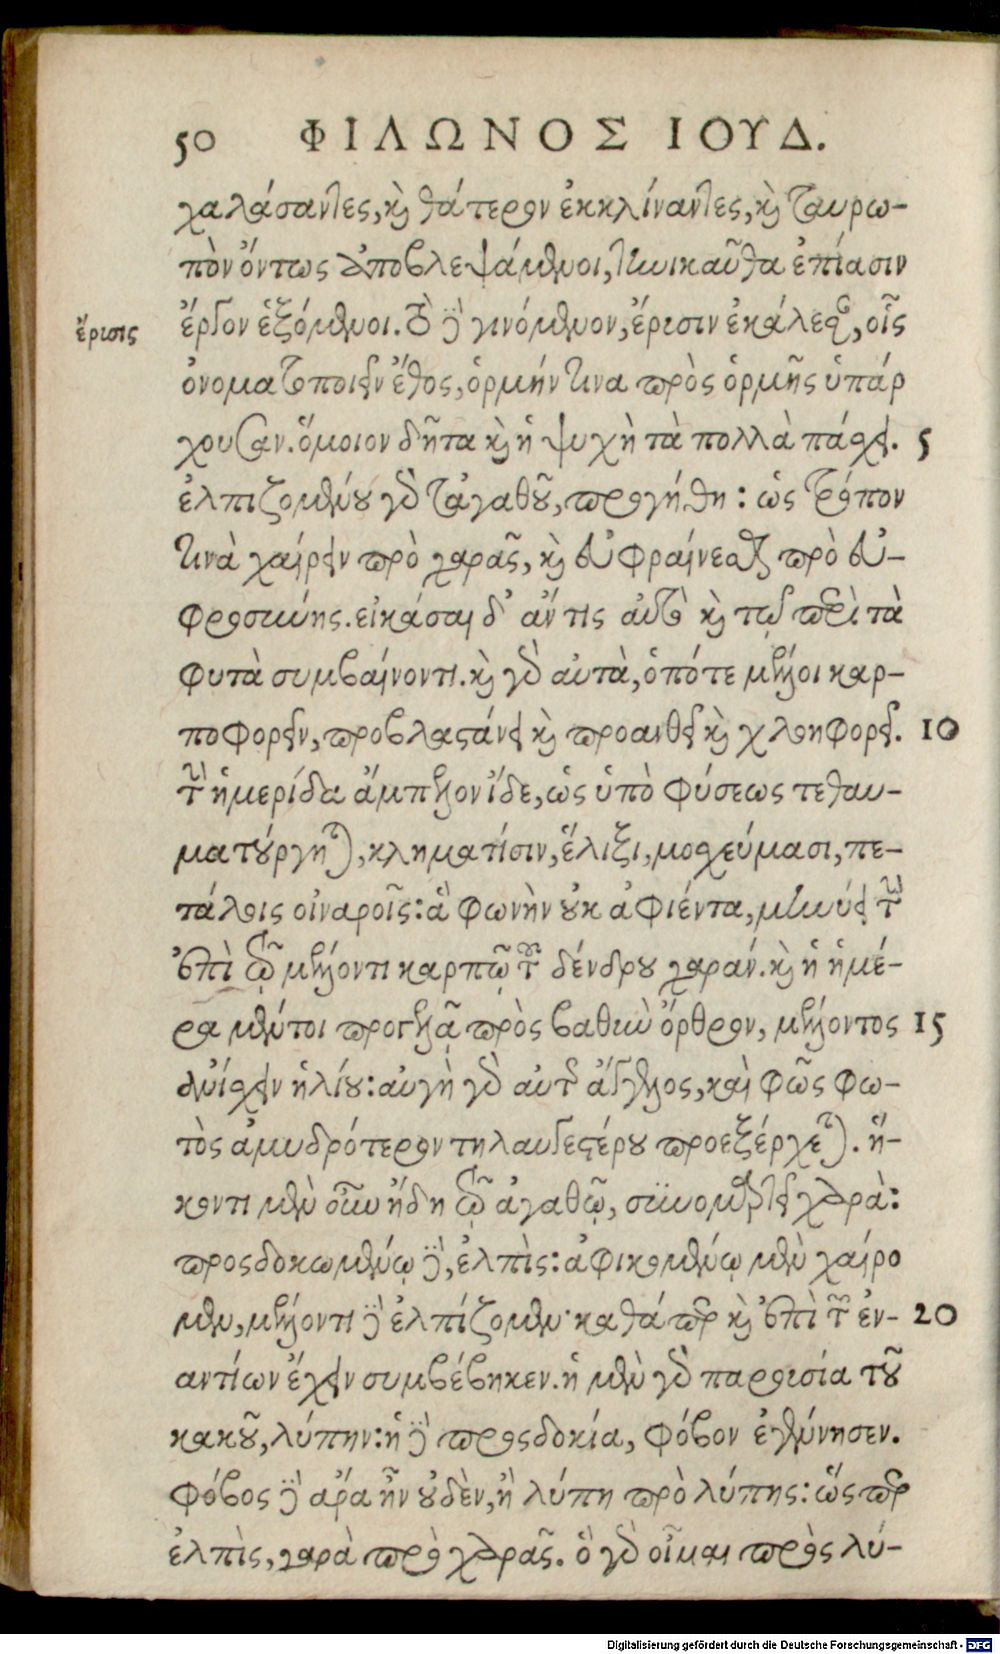 50 ΦΙΛΩΝΟΣ ΙΟΥΔ.
χαλάσαντες, καὶ θάτερον ἐκκλίναντες, καὶ ταυρω-
πὸν ὄντως ἀποβλεψάμενοι, τηνικαῦθα ἐπίασιν
ἔρισις
ἔργον ἑξόμενοι. τὸ δὲ γινόμενον, ἔρισιν ἐκάλεσαν, οἷς
ὀνοματοποιεῖν ἔθος, ὁρμήν τινα πρὸς ὁρμῆς ὑπάρ
χουσαν. ὅμοιον δῆτα καὶ ἡ ψυχὴ τὰ πολλὰ πάσχει. 5
ἐλπιζομένου γὰρ τἀγαθοῦ, προγήθει: ὡς τρόπον
τινὰ χαίρειν πρὸ χαρᾶς, καὶ εὐφραίνεσθαι πρὸ εὐ-
φροσύνης. εἰκάσαι δ' ἄν τις αὐτὸ καὶ τῷ περὶ τὰ
φυτὰ συμβαίνοντι. καὶ γὰρ αὐτὰ, ὁπότε μέλλοι καρ-
ποφορεῖν, προβλαστάνει καὶ προανθεῖ καὶ χλοηφορεῖ. 10
τὴν ἡμερίδα ἄμπελον ἴδε, ὡς ὑπὸ φύσεως τεθαυ-
ματούργηται, κληματίσιν, ἕλιξι, μοσχεύμασι, πε-
τάλοις οἰναροῖς: ἃ φωνὴν οὐκ ἀφιέντα, μηνύει τὴν
ἐπὶ τῷ μέλλοντι καρπῷ τοῦ δένδρου χαράν. καὶ ἡ ἡμέ-
ρα μέντοι προγελᾷ πρὸς βαθὺν ὄρθρον, μέλλοντος 15
ἀνίσχειν ἡλίου: αὐγὴ γὰρ αὐγῆς ἄγγελος, καὶ φῶς φω-
τὸς ἀμυδρότερον τηλαυγεστέρου προεξέρχεται. ἥ-
κοντι μὲν οὖν ἤδη τῷ ἀγαθῷ, συνομαρτεῖ χαρὰ:
προσδοκωμένῳ δὲ, ἐλπὶς: ἀφικομένῳ μὲν χαίρο
μεν, μέλλοντι δὲ ἐλπίζομεν· καθάπερ καὶ ἐπὶ τῶν ἐν- 20
αντίων ἔχειν συμβέβηκεν. ἡ μὲν γὰρ παρουσία τοῦ
κακοῦ, λύπην: ἡ δὲ προσδοκία, φόβον ἐγέννησεν.
φόβος δὲ ἄρα ἦν οὐδὲν, ἢ λύπη πρὸ λύπης: ὥσπερ
ἐλπὶς, χαρὰ πρὸ χαρᾶς. ὃ γὰρ οἶμαι πρὸς λύ-
Digitalisierung gefördert durch die Deutsche Forschungsgemeinschaft - DFG